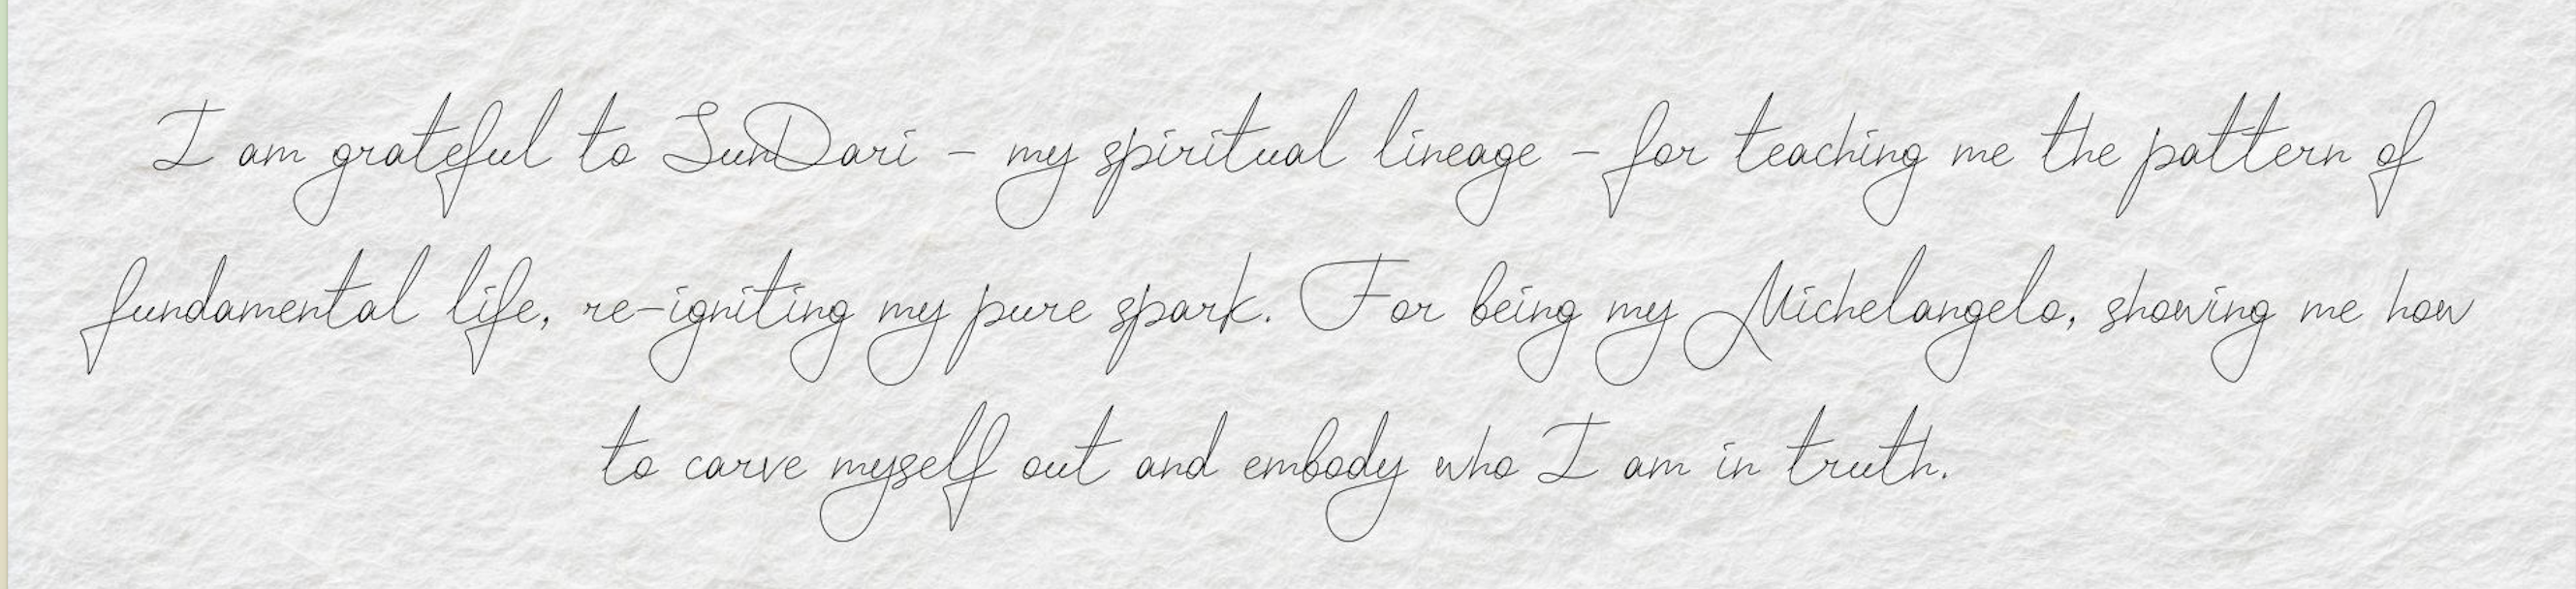 I am grateful to SunDari - my spiritual lineage - for teaching me the pattern of
fundamental life, re-igniting my pure spark. For being my Michelangelo, showing me how
to carve myself out and embody who I am in truth.